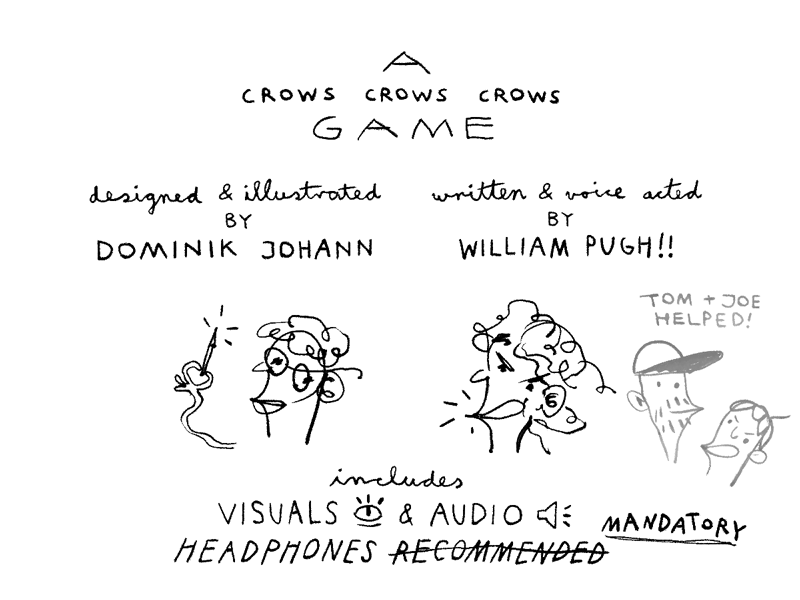 A
CROWS CROWS CROWS
GAME
designed & illustrated
BY
DOMINIK JOHANN
written & voice acted
BY
WILLIAM PUGH!!
TOM + JOE
HELPED!
includes
VISUALS & AUDIO
HEADPHONES RECOMMENDED MANDATORY